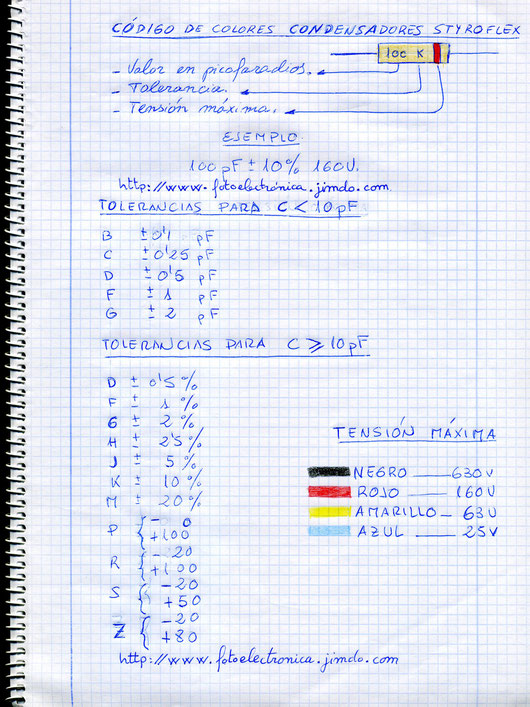 CÓDIGO DE COLORES CONDENSADORES STYROFLEX
100 K
- Valor en picofaradios.
- Tolerancia.
- Tensión máxima.
EJEMPLO
100 pF ± 10% 160V.
http://www.fotoelectrónica.jimdo.com
TOLERANCIAS PARA C < 10 pF
B ± 0'1 pF
C ± 0'25 pF
D ± 0'5 pF
F ± 1 pF
G ± 2 pF
TOLERANCIAS PARA C ⩾ 10 pF
D ± 0'5 %
F ± 1 %
G ± 2 %
H ± 2'5 %
J ± 5 %
K ± 10 %
M ± 20 %
P { - 0
+100
R { - 20
+100
S { -20
+50
Z { -20
+80
TENSIÓN MÁXIMA
NEGRO — 630V
ROJO — 160V
AMARILLO — 63V
AZUL — 25V
http://www.fotoelectronica.jimdo.com